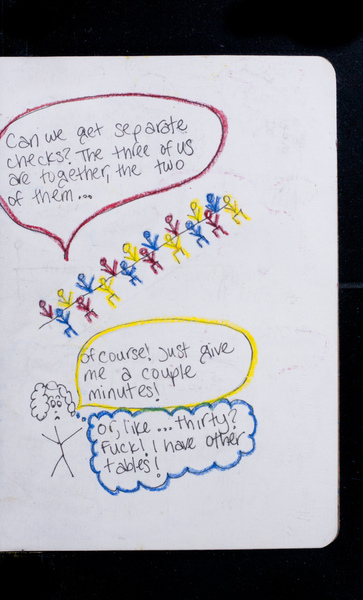 Can we get separate
checks? The three of us
are together, the two
of them...
Of course! Just give
me a couple
minutes!
Or, like ... thirty?
Fuck! I have other
tables!